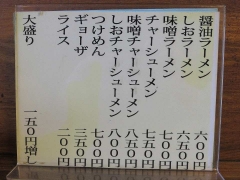 醤油ラーメン 六〇〇円
しおラーメン 六五〇円
味噌ラーメン 七〇〇円
チャーシューメン 七五〇円
味噌チャーシューメン 八五〇円
しおチャーシューメン 八〇〇円
つけめん 七〇〇円
ギョーザ 三五〇円
ライス 二〇〇円
大盛り 一五〇円増し